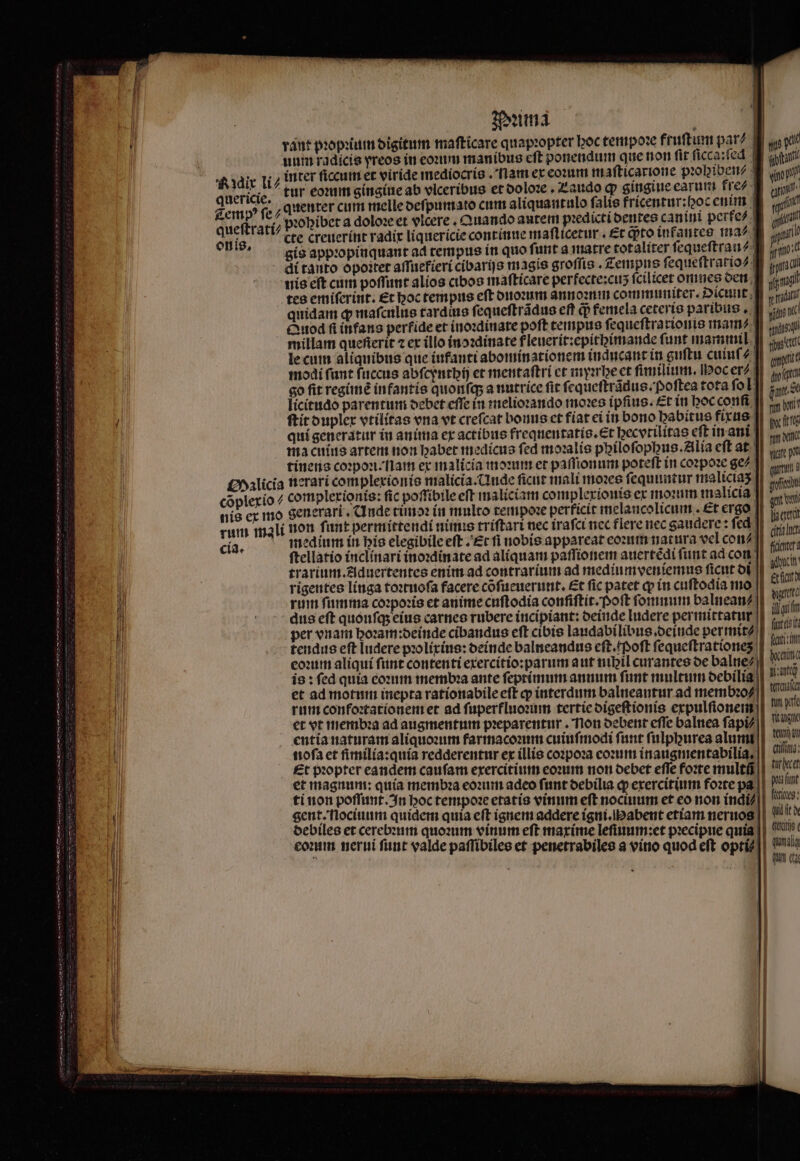 Prima
rant propriũ digitum masticare quapropter hoc tempore frustum par⸗
uum radicis yreos in eorum manibus est ponendum que non sit sicca: sed
inter siccum et viride mediocris. Nam ex eorum masticatione prohiben⸗
tur eorum gingiue ab vlceribus et dolore. Laudo ꝙ gingiue earum fre⸗
quenter cum melle despumato cum aliquantulo salis fricentur: hoc enim
prohibet a dolore et vlcere. Quando autem predicti dentes canini perfe⸗
cte creuerint radix liquericie continue masticetur. Et q̃to infantes ma⸗
gis appropinquant ad tempus in quo sunt a matre totaliter sequestran⸗
di tanto oportet assuefieri cibarijs magis grossis. Tempus sequestratio⸗
nis est cum possunt alios cibos masticare perfecte: cuꝫ scilicet omnes den
tes emiserint. Et hoc tempus est duorum annorum communiter. Dicunt
quidam ꝙ masculus tardius sequestrãdus est q̃ femela ceteris paribus.
Quod si infans perfide et inordinate post tempus sequestrationis mam⸗
millam quesierit ⁊ ex illo inordinate fleuerit: epithimande sunt mammil
le cum aliquibus que infanti abominationem inducant in gustu cuius⸗
modi sunt succus abscynthij et mentastri et myrrhe et similium. Hoc er⸗
go sit regimẽ infantis quousqꝫ a nutrice sit sequestrãdus. Postea tota sol
licitudo parentum debet esse in meliorando mores ipsius. Et in hoc consi
stit duplex vtilitas vna vt crescat bonus et fiat ei in bono habitus fixus
qui generatur in anima ex actibus frequentatis. Et hec vtilitas est in ani
ma cuius artem non habet medicus sed moralis philosophus. Alia est at
tinens corpori. Nam ex malicia morum et passionum potest in corpore ge⸗
nerari complexionis malicia. Unde sicut mali mores sequuntur maliciaꝫ
complexionis: sic possibile est maliciam complexionis ex morum malicia
generari. Unde timor in multo tempore perficit melancolicum. Et ergo
non sunt permittendi nimis tristari nec irasci nec flere nec gaudere: sed
medium in his elegibile est. Et si nobis appareat eorum natura vel con⸗
stellatio inclinari inordinate ad aliquam passionem auertẽdi sunt ad con
trarium. Aduertentes enim ad contrarium ad medium veniemus sicut di
rigentes ligna tortuosa facere cõsueuerunt. Et sic patet ꝙ in custodia mo
rum summa corporis et anime custodia consistit. Post somnum balnean⸗
dus est quousqꝫ eius carnes rubere incipiant: deinde ludere permittatur
per vnam horam: deinde cibandus est cibis laudabilibus. deinde permit⸗
tendus est ludere prolixius: deinde balneandus est. Post sequestrationeꝫ
eorum aliqui sunt contenti exercitio: parum aut nihil curantes de balne⸗
is: sed quia eorum membra ante septimum annum sunt multum debilia
et ad motum inepta rationabile est ꝙ interdum balneantur ad membro⸗
rum confortationem et ad superfluorum tertie digestionis expulsionem
et vt membra ad augmentum preparentur. Non debent esse balnea sapi⸗
entia naturam aliquorum farmacorum cuiusmodi sunt sulphurea alumi
nosa et similia: quia redderentur ex illis corpora eorum inaugmentabilia.
Et propter eandem causam exercitium eorum non debet esse forte multũ
et magnum: quia membra eorum adeo sunt debilia ꝙ exercitium forte pa
ti non possunt. In hoc tempore etatis vinum est nociuum et eo non indi⸗
gent. Nociuum quidem quia est ignem addere igni. Habent etiam neruos
debiles et cerebrum quorum vinum est maxime lesiuum: et precipue quia
eorum nerui sunt valde passibiles et penetrabiles a vino quod est opti⸗
Radix li⸗
quericie.
Temp⁹ se⸗
questrati⸗
onis.
Malicia
cõplexio⸗
nis ex mo
rum mali
cia.